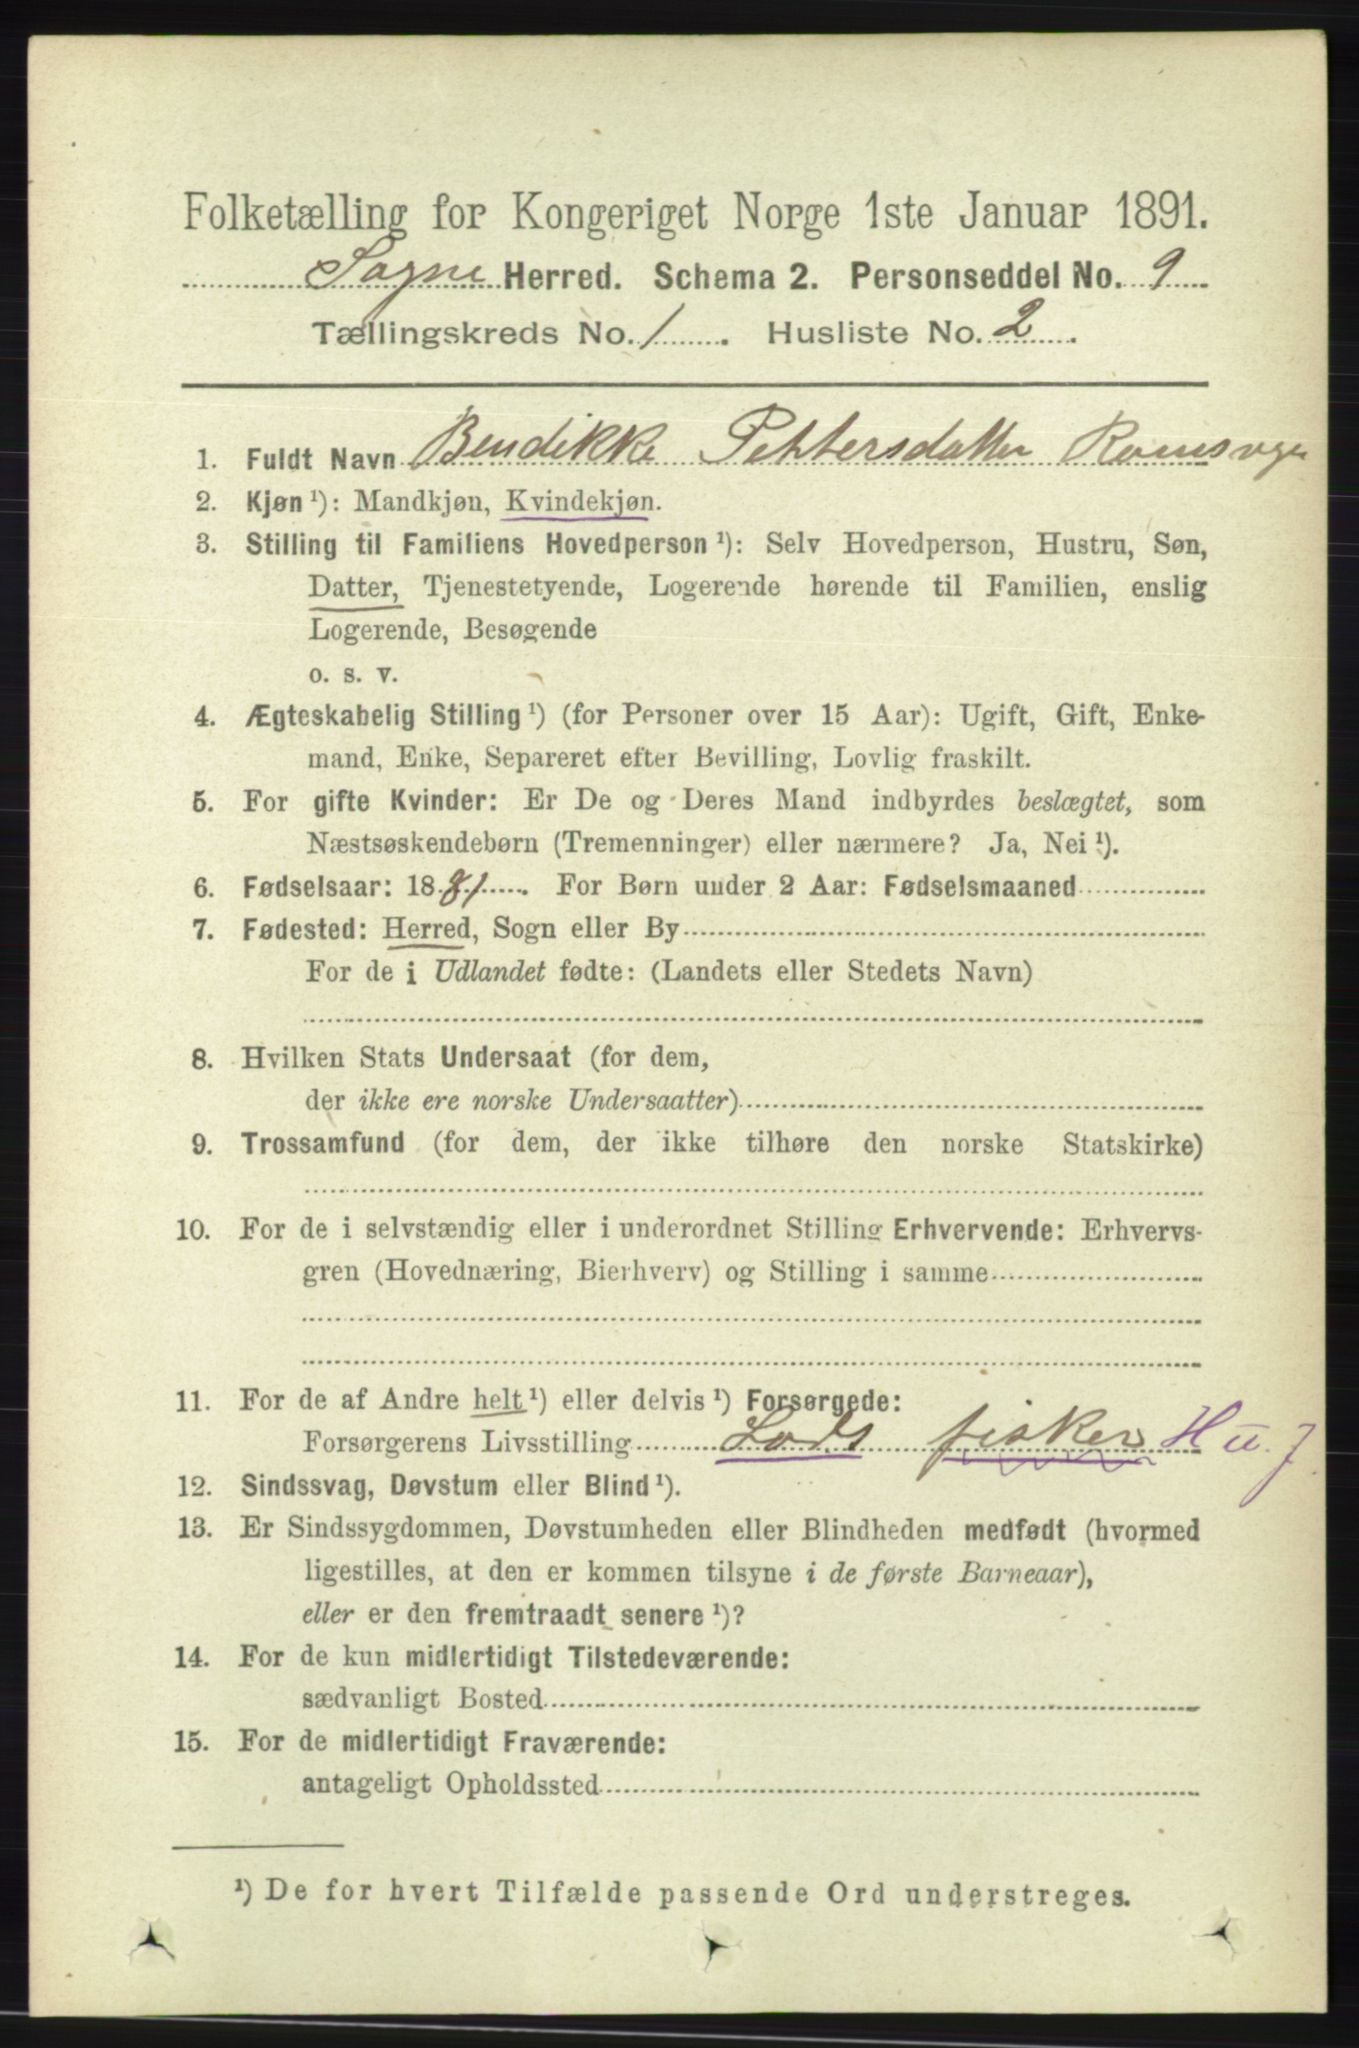 Folketælling for Kongeriget Norge 1ste Januar 1891.
Søgne Herred. Schema 2. Personseddel No. 9
Tællingskreds No. 1. Husliste No. 2.
1. Fuldt Navn Bendikke Pettersdatter
2. Kjøn ¹): Mandkjøn, Kvindekjøn.
3. Stilling til Familiens Hovedperson ¹): Selv Hovedperson, Hustru, Søn,
Datter, Tjenestetyende, Logerende hørende til Familien, enslig
Logerende, Besøgende
o. s. v.
4. Ægteskabelig Stilling ¹) (for Personer over 15 Aar): Ugift, Gift, Enke-
mand, Enke, Separeret efter Bevilling, Lovlig fraskilt.
5. For gifte Kvinder: Er De og Deres Mand indbyrdes beslægtet, som
Næstsøskendebørn (Tremenninger) eller nærmere? Ja, Nei ¹).
6. Fødselsaar: 1881. For Børn under 2 Aar: Fødselsmaaned
7. Fødested: Herred, Sogn eller By
For de i Udlandet fødte: (Landets eller Stedets Navn)
8. Hvilken Stats Undersaat (for dem,
der ikke ere norske Undersaatter)
9. Trossamfund (for dem, der ikke tilhøre den norske Statskirke)
10. For de i selvstændig eller i underordnet Stilling Erhvervende: Erhvervs-
gren (Hovednæring, Bierhverv) og Stilling i samme
11. For de af Andre helt ¹) eller delvis ¹) Forsørgede:
Forsørgerens Livsstilling Lods fisker H u. J
12. Sindssvag, Døvstum eller Blind ¹).
13. Er Sindssygdommen, Døvstumheden eller Blindheden medfødt (hvormed
ligestilles, at den er kommen tilsyne i de første Barneaar),
eller er den fremtraadt senere ¹)?
14. For de kun midlertidigt Tilstedeværende:
sædvanligt Bosted
15. For de midlertidigt Fraværende:
antageligt Opholdssted
¹) De for hvert Tilfælde passende Ord understreges.